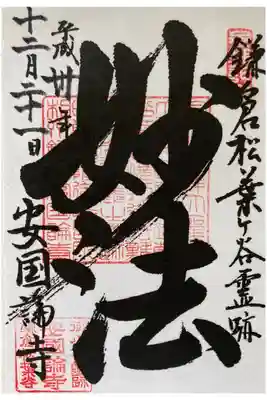 鎌倉松葉ヶ谷霊跡
妙法
平成卅年
十二月二十一日
安国論寺